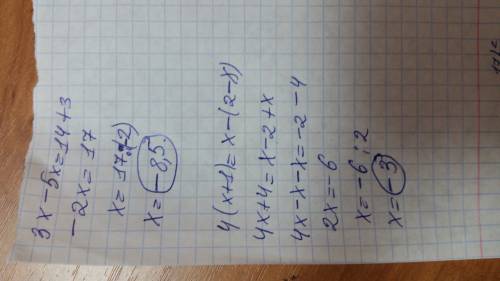 3x-5x=14+3
-2x=17
x=17:(-2)
x=-8,5.
4(x+1)=x-(2-x)
4x+4=x-2+x
4x-x-x=-2-4
2x=-6
x=-6:2
x=-3